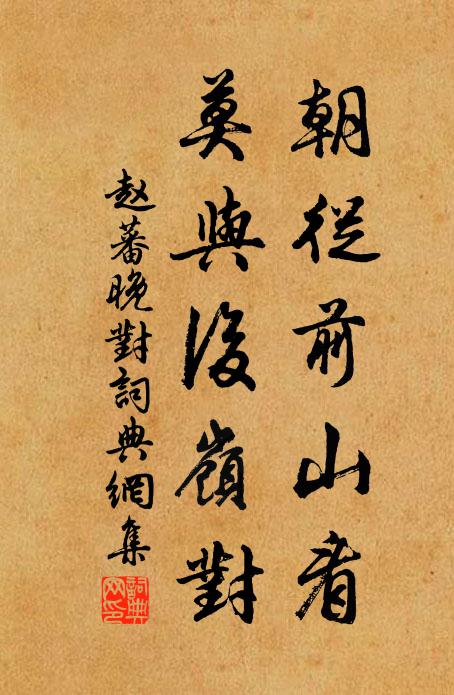 朝從前山看
莫與後嶺對
赵蕃晚對詞典網集
詞典
网印